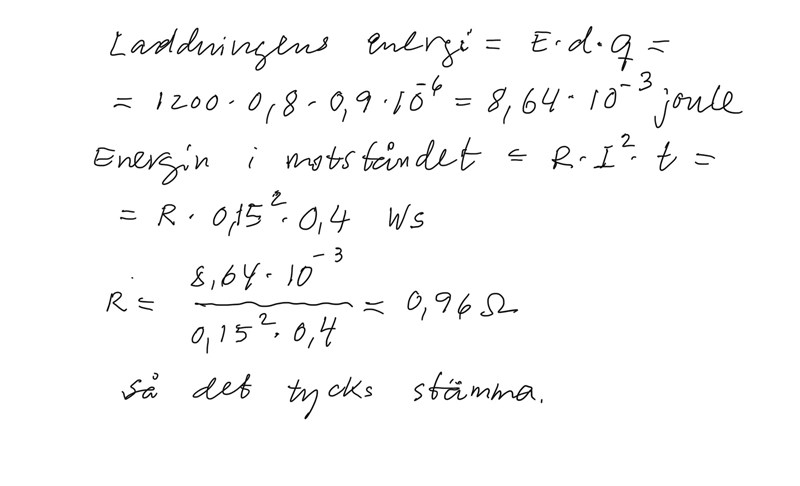 Laddningens energi = E·d·q =
= 1200·0,8·0,9·10⁻⁶ = 8,64·10⁻³ joule
Energin i motståndet = R·I²·t =
= R·0,15²·0,4 Ws
R = 8,64·10⁻³ / 0,15²·0,4 = 0,96 Ω
så det tycks stämma.